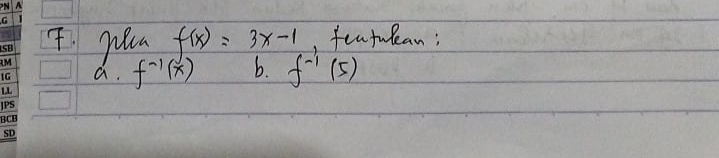 PN A
G
SB
RM
IG
LL
JPS
BCB
SD
7. Jika f(x) = 3x-1, tentukan:
a. f⁻¹(x) b. f⁻¹(5)